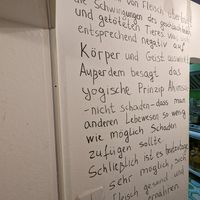 von Fleisch überträgt
die Schwingungen des geschlachteten
und getöteten Tieres
entsprechend negativ auf
Körper und Geist auswirkt.
Außerdem besagt das
yogische Prinzip Ahimsa
-nicht schaden- dass man
anderen Lebewesen so wenig
wie möglich Schaden
zufügen sollte.
Schließlich ist es heutzutage
sehr möglich, sich
Fleisch gesund und
ernähren.